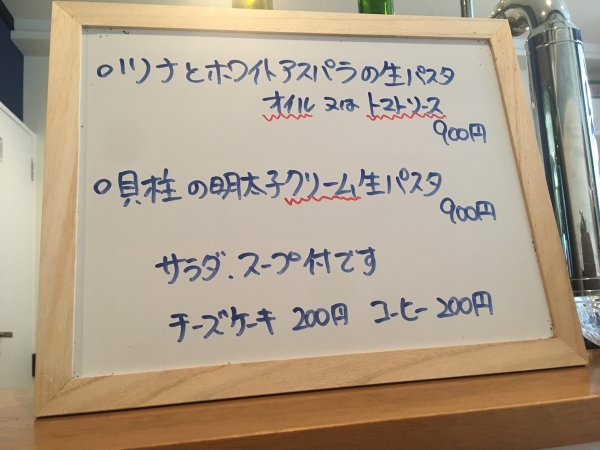 ○ツナとホワイトアスパラの生パスタ
オイル又はトマトソース
900円
○貝柱の明太子クリーム生パスタ
900円
サラダ、スープ付です
チーズケーキ 200円 コーヒー 200円